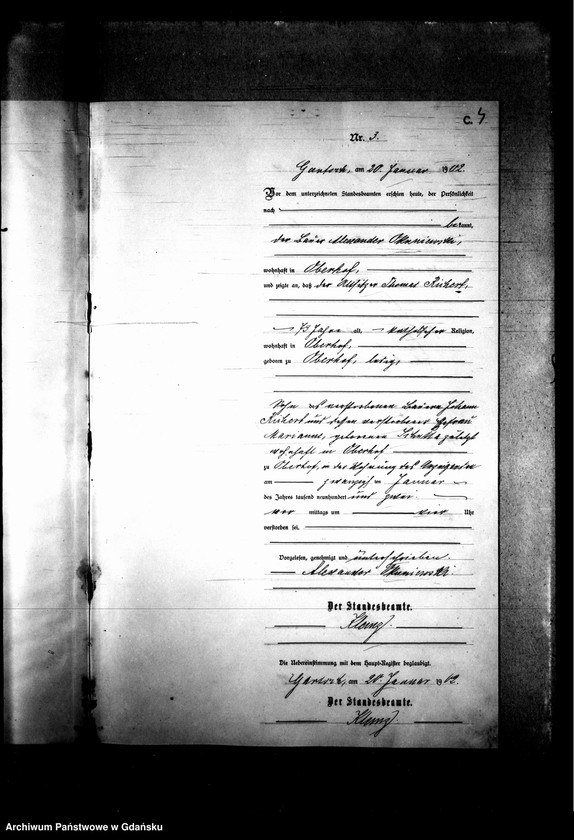 C. 4
Nr. 3.
am 20. Januar 1902.
Vor dem unterzeichneten Standesbeamten erschien heute, der Persönlichkeit
nach
bekannt,
der Bauer Alexander Okuniewski,
wohnhaft in Oberhof,
und zeigte an, daß der Altsitzer Thomas
73 Jahre alt, katholischer Religion,
wohnhaft in Oberhof,
geboren zu Oberhof, ledig,
Sohn des verstorbenen Bauern Johann
und dessen verstorbener Ehefrau
Marianna, geborenen zuletzt
wohnhaft in Oberhof
zu Oberhof, in der Wohnung des Anzeigenden
am zwanzigsten Januar
des Jahres tausend neunhundert und zwei
vor mittags um vier Uhr
verstorben sei.
Vorgelesen, genehmigt und unterschrieben.
Alexander Okuniewski.
Der Standesbeamte.
Die Uebereinstimmung mit dem Haupt-Register beglaubigt.
am 20. Januar 1902.
Der Standesbeamte.
Archiwum Państwowe w Gdańsku